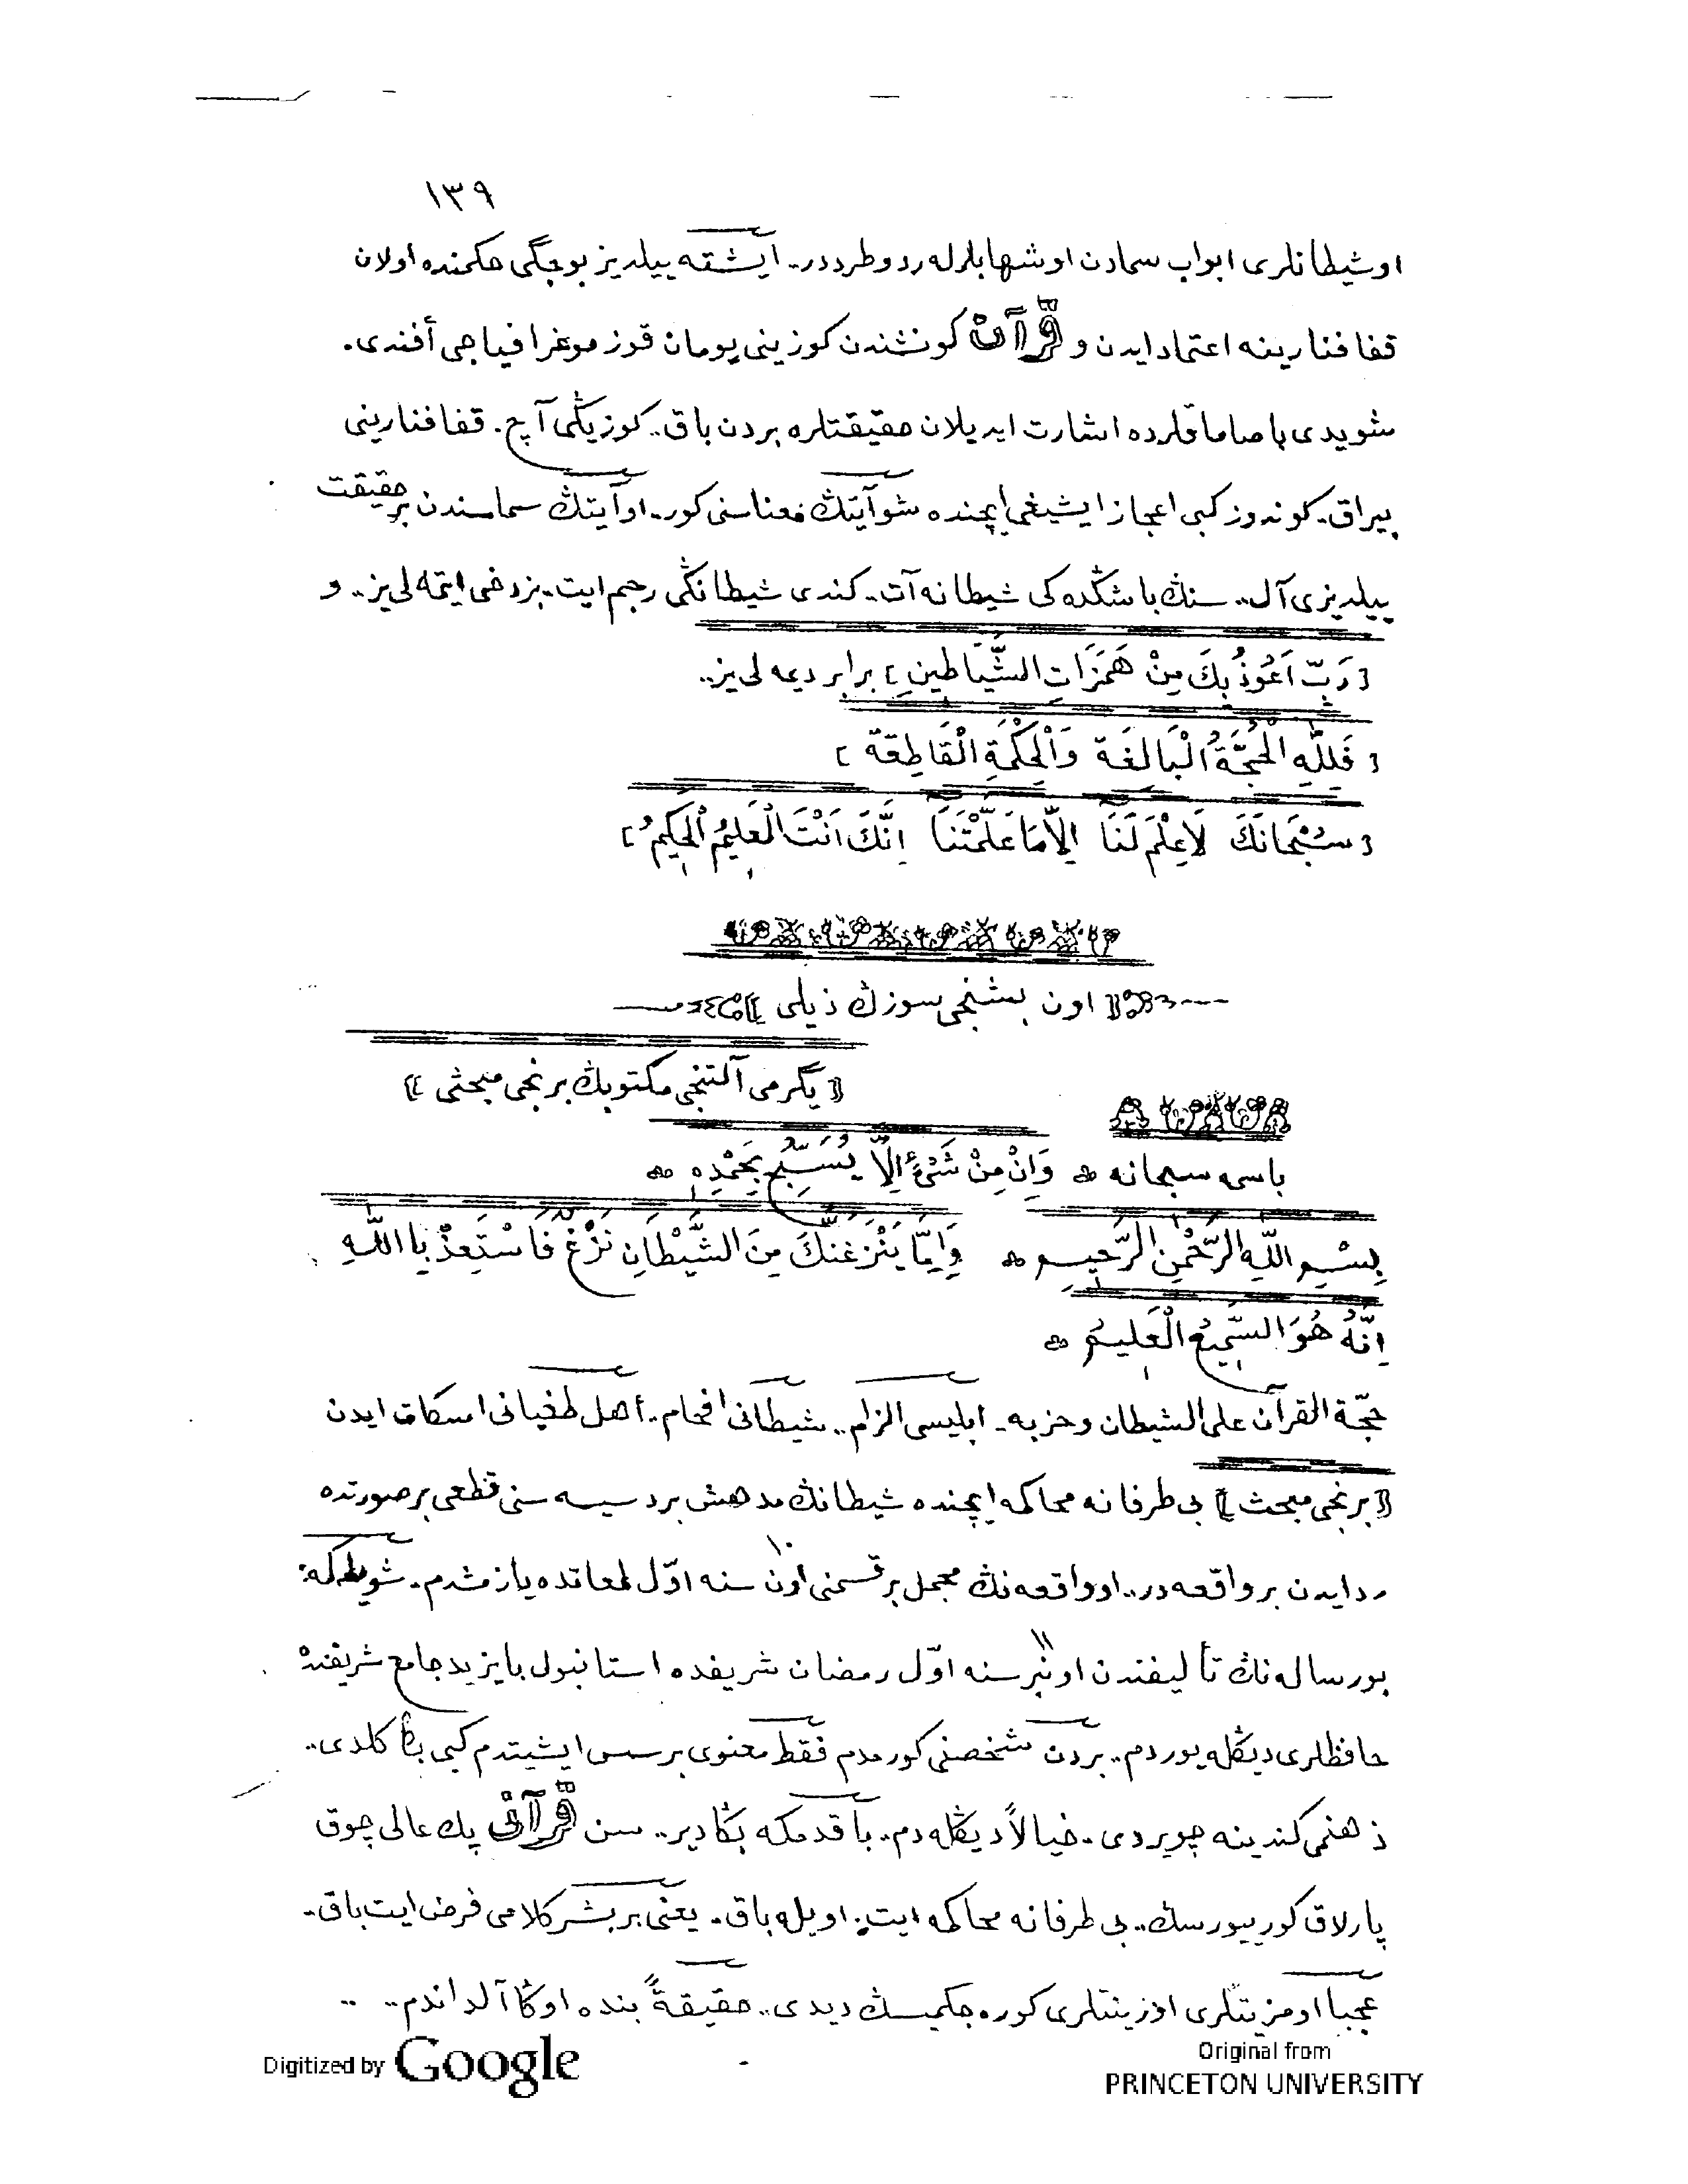 ١٣٩
او شیطانلری ابواب سمادن او شهابلرله رد و طرددر.. ایشته ییلدیز بوجگی حکمنده اولان
قفا فنارینه اعتماد ایدن و قرآن کونشندن کوزینی یومان قوزموغرافیاجی أفندی.
شو یدی باصاماقلرده اشارت ایدیلان حقیقتلره بردن باق.. کوزیڭی آچ. قفا فنارینی
بیراق. کوندوز کبی اعجاز ایشیغی ایچنده شو آیتڭ معناسنی کور. او آیتڭ سماسندن بر حقیقت
ییلدیزی آل.. سنڭ باشڭده کی شیطانه آت. کندی شیطانڭی رجم ایت. بز دخی ایتمه لی یز.. و
[ رَبِّ اَعُوذُ بِكَ مِنْ هَمَزَاتِ الشَّيَاطِينِ ] برابر دیمه لی یز..
[ فَلِلّٰهِ الْحُجَّةُ الْبَالِغَة وَالْحِكْمَةِ الْقَاطِعَة ]
[ سُبْحَانَكَ لَاعِلْمَ لَنَا اِلَّا مَا عَلَّمْتَنَا اِنَّكَ اَنْتَ الْعَلِيمُ الْحَكِيمُ ]
اون بشنجی سوزڭ ذیلی
﴿ یگرمی آلتنجی مکتوبڭ برنجی مبحثی ﴾
باسمه سبحانه وَاِنْ مِنْ شَىْءٍ اِلَّا يُسَبِّحُ بِحَمْدِهِ
بِسْمِ اللّٰهِ الرَّحْمٰنِ الرَّحِيمِ وَاِمَّا يَنْزَغَنَّكَ مِنَ الشَّيْطَانِ نَزْغٌ فَاسْتَعِذْ بِا اللّٰهِ
اِنَّهُ هُوَ السَّمِيعُ الْعَلِيمُ
حجّة القرآن على الشیطان وحزبه. ابلیسی الزام.. شیطانی افحام.. أهل طغیانی اسکات ایدن
﴿ برنجی مبحث ﴾ بی طرفانه محاکمه ایچنده شیطانڭ مدهش بر دسیسه سنی قطعی بر صورتده
رد ایدن بر واقعه در.. او واقعه نڭ مجمل بر قسمنی اون ١٠ سنه اوّل لمعاتده یازمشدم. شویله که:
بو رساله نڭ تألیفندن اون بر ١١ سنه اوّل رمضان شریفده استانبول بایزید جامع شریفنده
حافظلری دیڭله یوردم.. بردن شخصنی کورمدم فقط معنوی بر سس ایشیتدم کبی بڭا کلدی..
ذهنمی کندینه چویردی. خیالاً دیڭله دم. باقدمکه بڭا دیر.. سن قرآنی پك عالی چوق
پارلاق کورییورسڭ.. بی طرفانه محاکمه ایت. اویله باق. یعنی بر بشر کلامی فرض ایت باق.
عجبا او مزیتلری او زینتلری کوره جکمیسڭ دیدی.. حقیقةً بنده اوڭا آلداندم..
Digitized by Google
Original from
PRINCETON UNIVERSITY